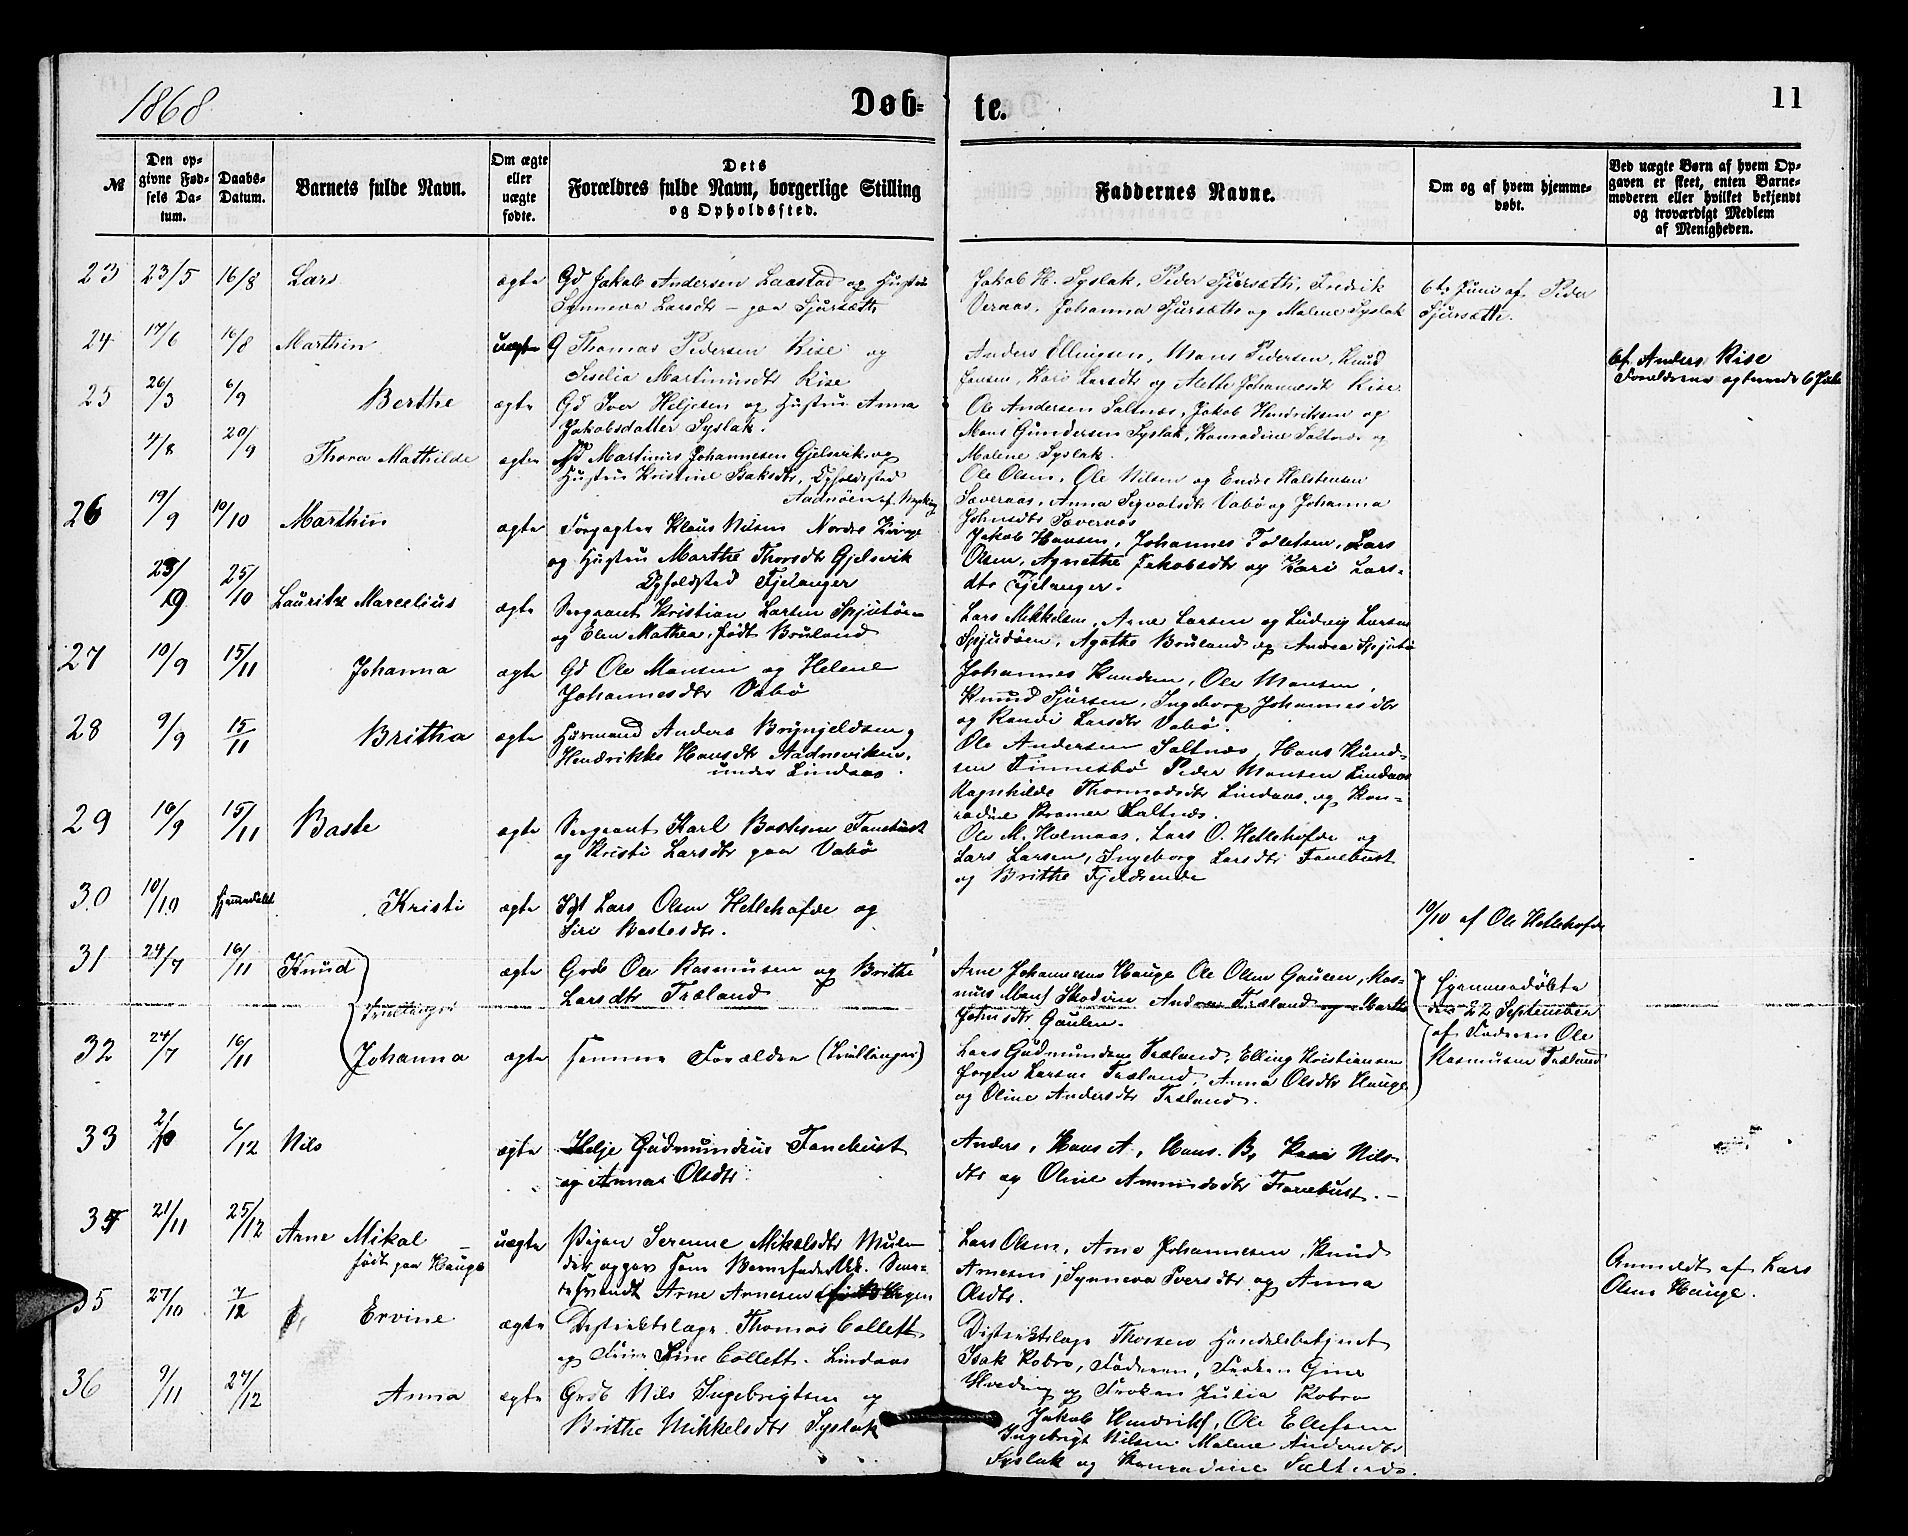 1868
Døb-
te.
11
№
Den op-
givne Fød-
sels Da-
tum.
Daabs-
Datum.
Barnets fulde Navn.
Om ægte
eller
uægte
fødte.
Dets
Forældres fulde Navn, borgerlige Stilling
og Opholdssted.
Faddernes Navne.
Om og af hvem hjemme-
døbt.
Ved uægte Børn af hvem Op-
gaven er skeet, enten Barne-
moderen eller hvilket bekjendt
og troværdigt Medlem
af Menigheden.
23 23/5 16/8 Lars ægte Gd Jakob Andersen Laastad og Hustru
Synneva Larsdtr - paa Sjursætti
Jakob H. Syslak, Peder Sjursætti, Fredrik
Veraas, Johanna Sjursætti og Malene Syslak
6te Juni af Peder
Sjursætti.
24 17/6 16/8 Marthin uægte G Thomas Pedersen Rise og
Seselia Martinusdtr Rise
Anders Ellingsen, Mons Pedersen, Knud
Jansen, Kari Larsdtr og Alethe Johannesdtr Rise
af Anders Rise
Forældrene ægteviede 6 Jule
25 26/3 6/9 Berthe ægte Gd Iver Heljesen og Hustru Anna
Jakobsdatter Syslak.
Ole Andersen Saltnæs, Jakob Hendriksen og
Mons Gundersen Syslak, Konradine Saltnæs og
Malene Syslak.
7/8 20/9 Thora Mathilde ægte Martines Johannesen Gjelsvik og
Hustru Kristine Isaksdtr, Opholdssted
Aadnøen
Ole Olsen, Ole Nilsen og Endre Halstensen
Sæveraas, Anna Sigvatsdtr Vabø og Johanna
Johnsdtr Sæveraas
26 19/9 10/10 Marthin ægte Forpagter Klaus Nilsen Nordre Kvinge
og Hustru Marthe Thorsdtr Gjelsvik
Opholdsted Fjelanger
Jakob Hansen, Johannes Tolletsen, Lars
Olsen, Agnethe Jakobsdtr og Kari Lars-
dtr Fjelanger.
23/9 25/10 Lauritz Marcelius ægte Sergeant Kristian Larsen Spjutøen
og Elen Mathea, født Bruland
Lars Mikkelsen, Arne Larsen og Ludvig Larsen
Spjudøen, Agathe Bruland og Andrea Spjutø
27 10/9 15/11 Johanna ægte Gd Ole Monsen og Helene
Johannesdtr Vabø
Johannes Knudsen, Ole Monsen,
Knud Sjursen, Ingeborg Johannesdtr
og Randi Larsdtr Vabø.
28 9/9 15/11 Britha ægte Huusmand Anders Brynjeldsen og
Hendrikke Hansdtr Aadnøviken,
under Lindaas.
Ole Andersen Saltnæs, Hans Knud-
sen Finnesbø Peder Monsen Lindaas
Ragnhilde Thormodsdtr Lindaas, og Kon-
radine Kramer Saltnæs.
29 16/9 15/11 Baste ægte Sergeant Karl Bastesen Fanebust
og Kristi Larsdtr paa Vabø
Ole M. Holmaas, Lars O. Hetlehofde og
Lars Larsen, Ingeborg Larsdtr Fanebust
og Brithe Fjeldsende
30 10/10 hjemmedøbt Kristi ægte Lars Olsen Hetlehofde og
Siri Bastesdtr.
19/10 af Ole Hetlehofde
31 24/7 16/11 Knud ægte Grdb Ole Rasmussen og Brithe
Larsdtr Træland
Tvillinger
Arne Johannesen Hauge Ole Olsen Gaulen, Ras-
mus Mons Skodvin Andrea Træland og Marthe
Johnsdtr Gaulen.
Hjemmedøbte
den 22 September
af Faderen Ole
Rasmussen Træland
32 24/7 16/11 Johanna ægte samme Forældre (Tvillinger)
Lars Gudmundsen Træland, Elling Kristiansen
Jørgen Larsen Træland, Anna Olsdtr Hauge
og Oline Andersdtr Træland.
33 2/10 6/12 Nils ægte Helje Gudmundsen Fanebust
og Anna Olsdtr
Anders, Hans A, Hans. B, Kari Nils-
dtr og Oline Amundsdtr Fanebust.
34 21/11 25/12 Arne Mikal
født paa Hauge
uægte Pigen Serene Mikalsdtr Mule
der opgav som Barnefader
Arne Arnesen
Lars Olsen, Arne Johannesen, Knud
Arnesen, Synneva Iversdtr og Anna
Olsdtr.
Anmeldt af Lars
Olsen Hauge.
35 27/10 7/12 Ervine ægte Distriktslæge Thomas Collett
og Frue Line Collett. Lindaas
Distriktslæge Thorsen Handelsbetjent
Isak Kobro, Faderen, Frøken Gine
Hveding og Frøken Julia Kobro
36 9/11 27/12 Anna ægte Grdb Nils Ingebrigtsen og
Brithe Mikkelsdtr Syslak
Jakob Hendriks, Ole Ellefsen
Ingebrigt Nilsen Malene Andersdtr
Syslak og Konradine Saltnæs.